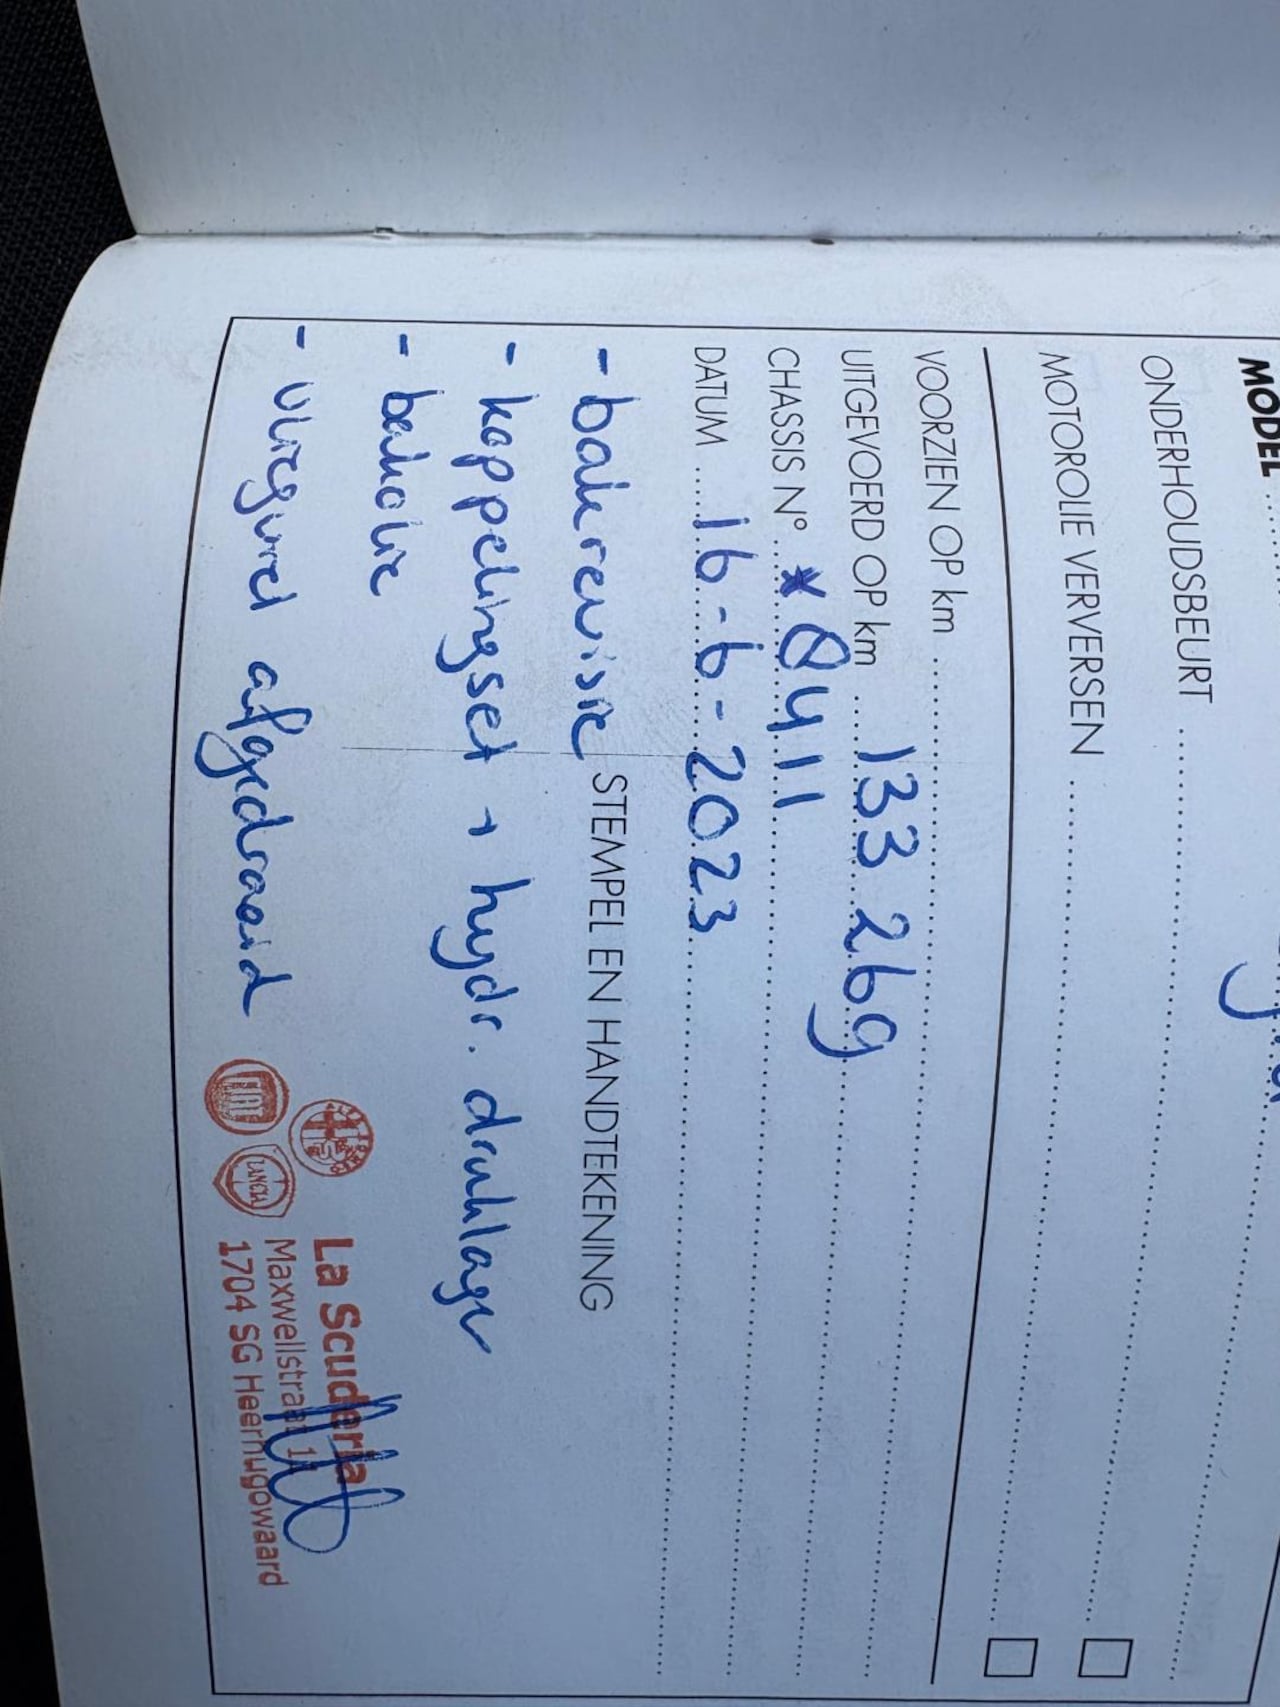 MODEL
ONDERHOUDSBEURT
MOTOROLIE VERVERSEN
VOORZIEN OP km
UITGEVOERD OP km 133 269
CHASSIS N° *8411
DATUM 16-6-2023
STEMPEL EN HANDTEKENING
- bakrevisie
- koppelingset + hydr. druklager
- bakolie
- vliegwiel afgedraaid
LANCIA
La Scuderia
Maxwellstraat 1
1704 SG Heerhugowaard